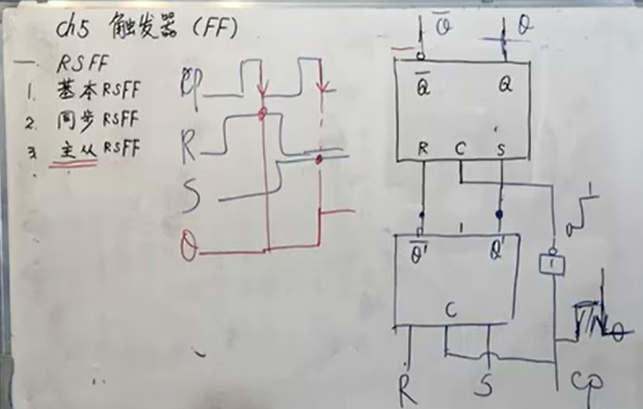 ch5 触发器 (FF)
一 RSFF
1. 基本RSFF
2. 同步RSFF
3. 主从RSFF
CP
R
S
Q
Q̅ Q
Q̅ Q
R C S
Q̅' Q'
1
C
R S CP